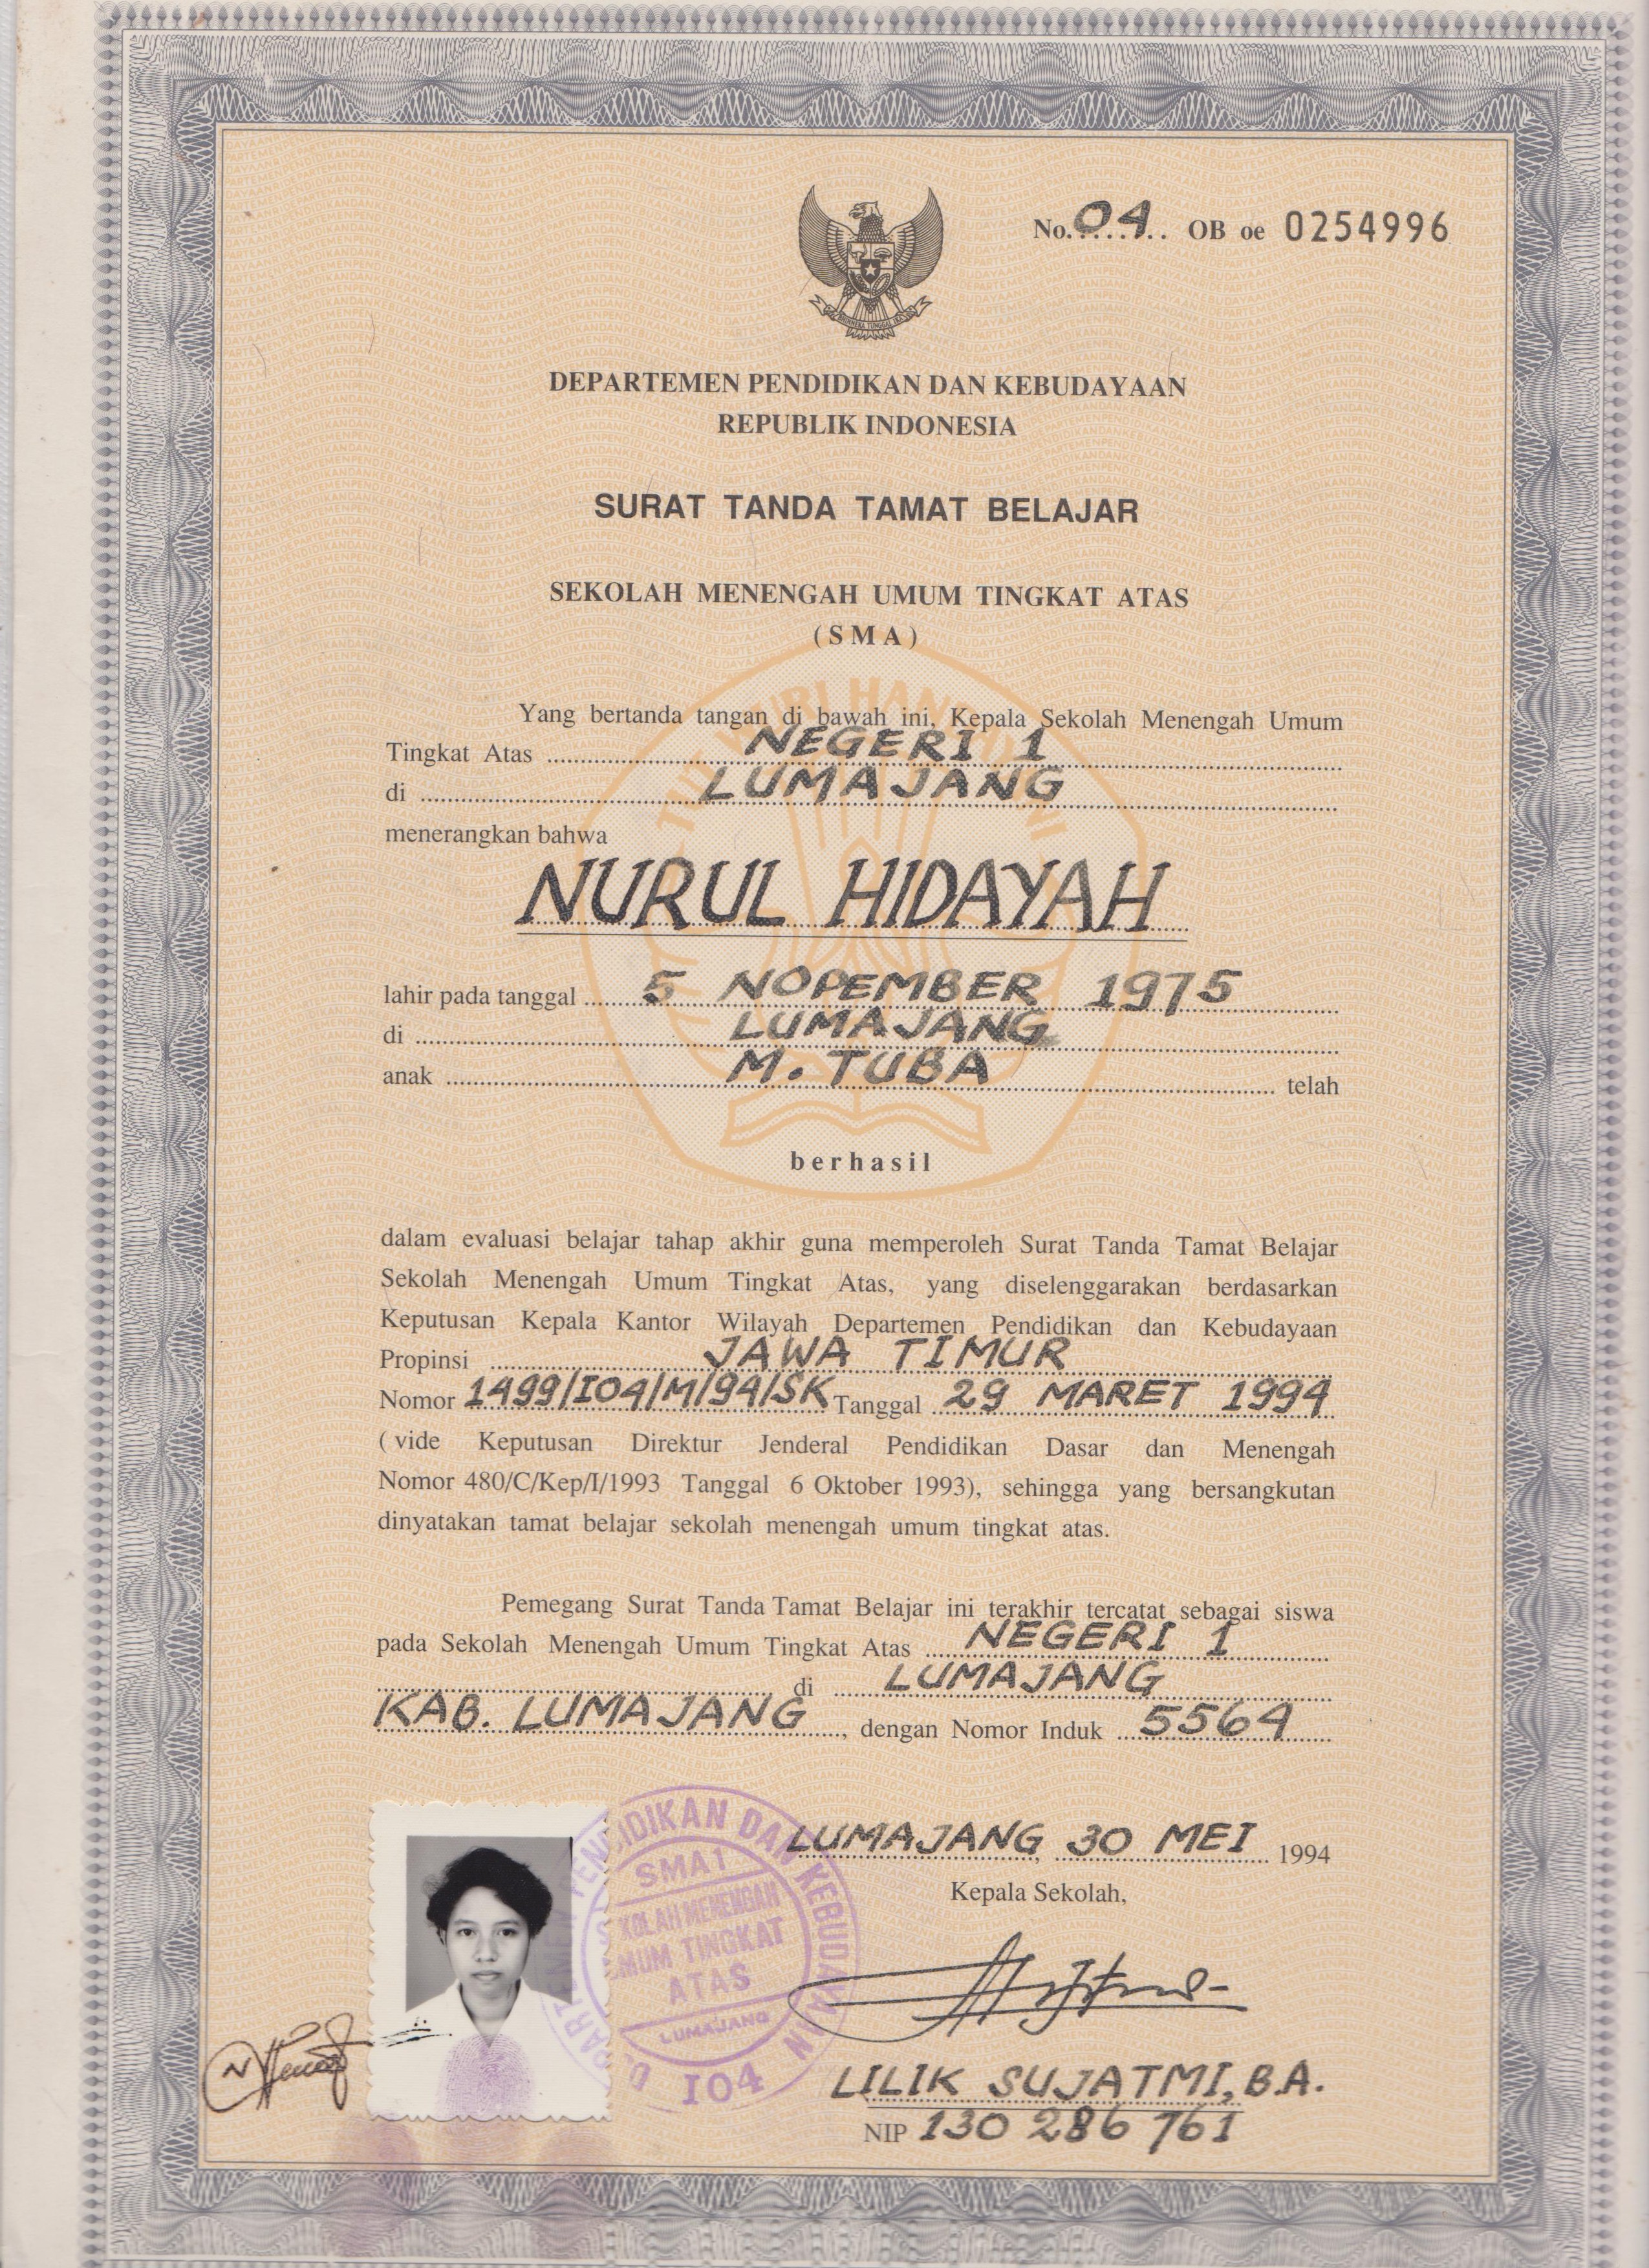 No. 04 OB oe 0254996
DEPARTEMEN PENDIDIKAN DAN KEBUDAYAAN
REPUBLIK INDONESIA
SURAT TANDA TAMAT BELAJAR
SEKOLAH MENENGAH UMUM TINGKAT ATAS
(SMA)
Yang bertanda tangan di bawah ini, Kepala Sekolah Menengah Umum
Tingkat Atas NEGERI 1
di LUMAJANG
menerangkan bahwa
NURUL HIDAYAH
lahir pada tanggal 5 NOPEMBER 1975
di LUMAJANG
anak M. TUBA telah
berhasil
dalam evaluasi belajar tahap akhir guna memperoleh Surat Tanda Tamat Belajar
Sekolah Menengah Umum Tingkat Atas, yang diselenggarakan berdasarkan
Keputusan Kepala Kantor Wilayah Departemen Pendidikan dan Kebudayaan
Propinsi JAWA TIMUR
Nomor 1499/I04/M/94/SK Tanggal 29 MARET 1994
( vide Keputusan Direktur Jenderal Pendidikan Dasar dan Menengah
Nomor 480/C/Kep/I/1993 Tanggal 6 Oktober 1993), sehingga yang bersangkutan
dinyatakan tamat belajar sekolah menengah umum tingkat atas.
Pemegang Surat Tanda Tamat Belajar ini terakhir tercatat sebagai siswa
pada Sekolah Menengah Umum Tingkat Atas NEGERI 1
di LUMAJANG
KAB. LUMAJANG, dengan Nomor Induk 5564
LUMAJANG, 30 MEI 1994
Kepala Sekolah,
PENDIDIKAN DAN KEBUDAYAAN
SMA 1
MENENGAH
UMUM TINGKAT
ATAS
LUMAJANG
I04
LILIK SUJATMI, B.A.
NIP 130 286 761